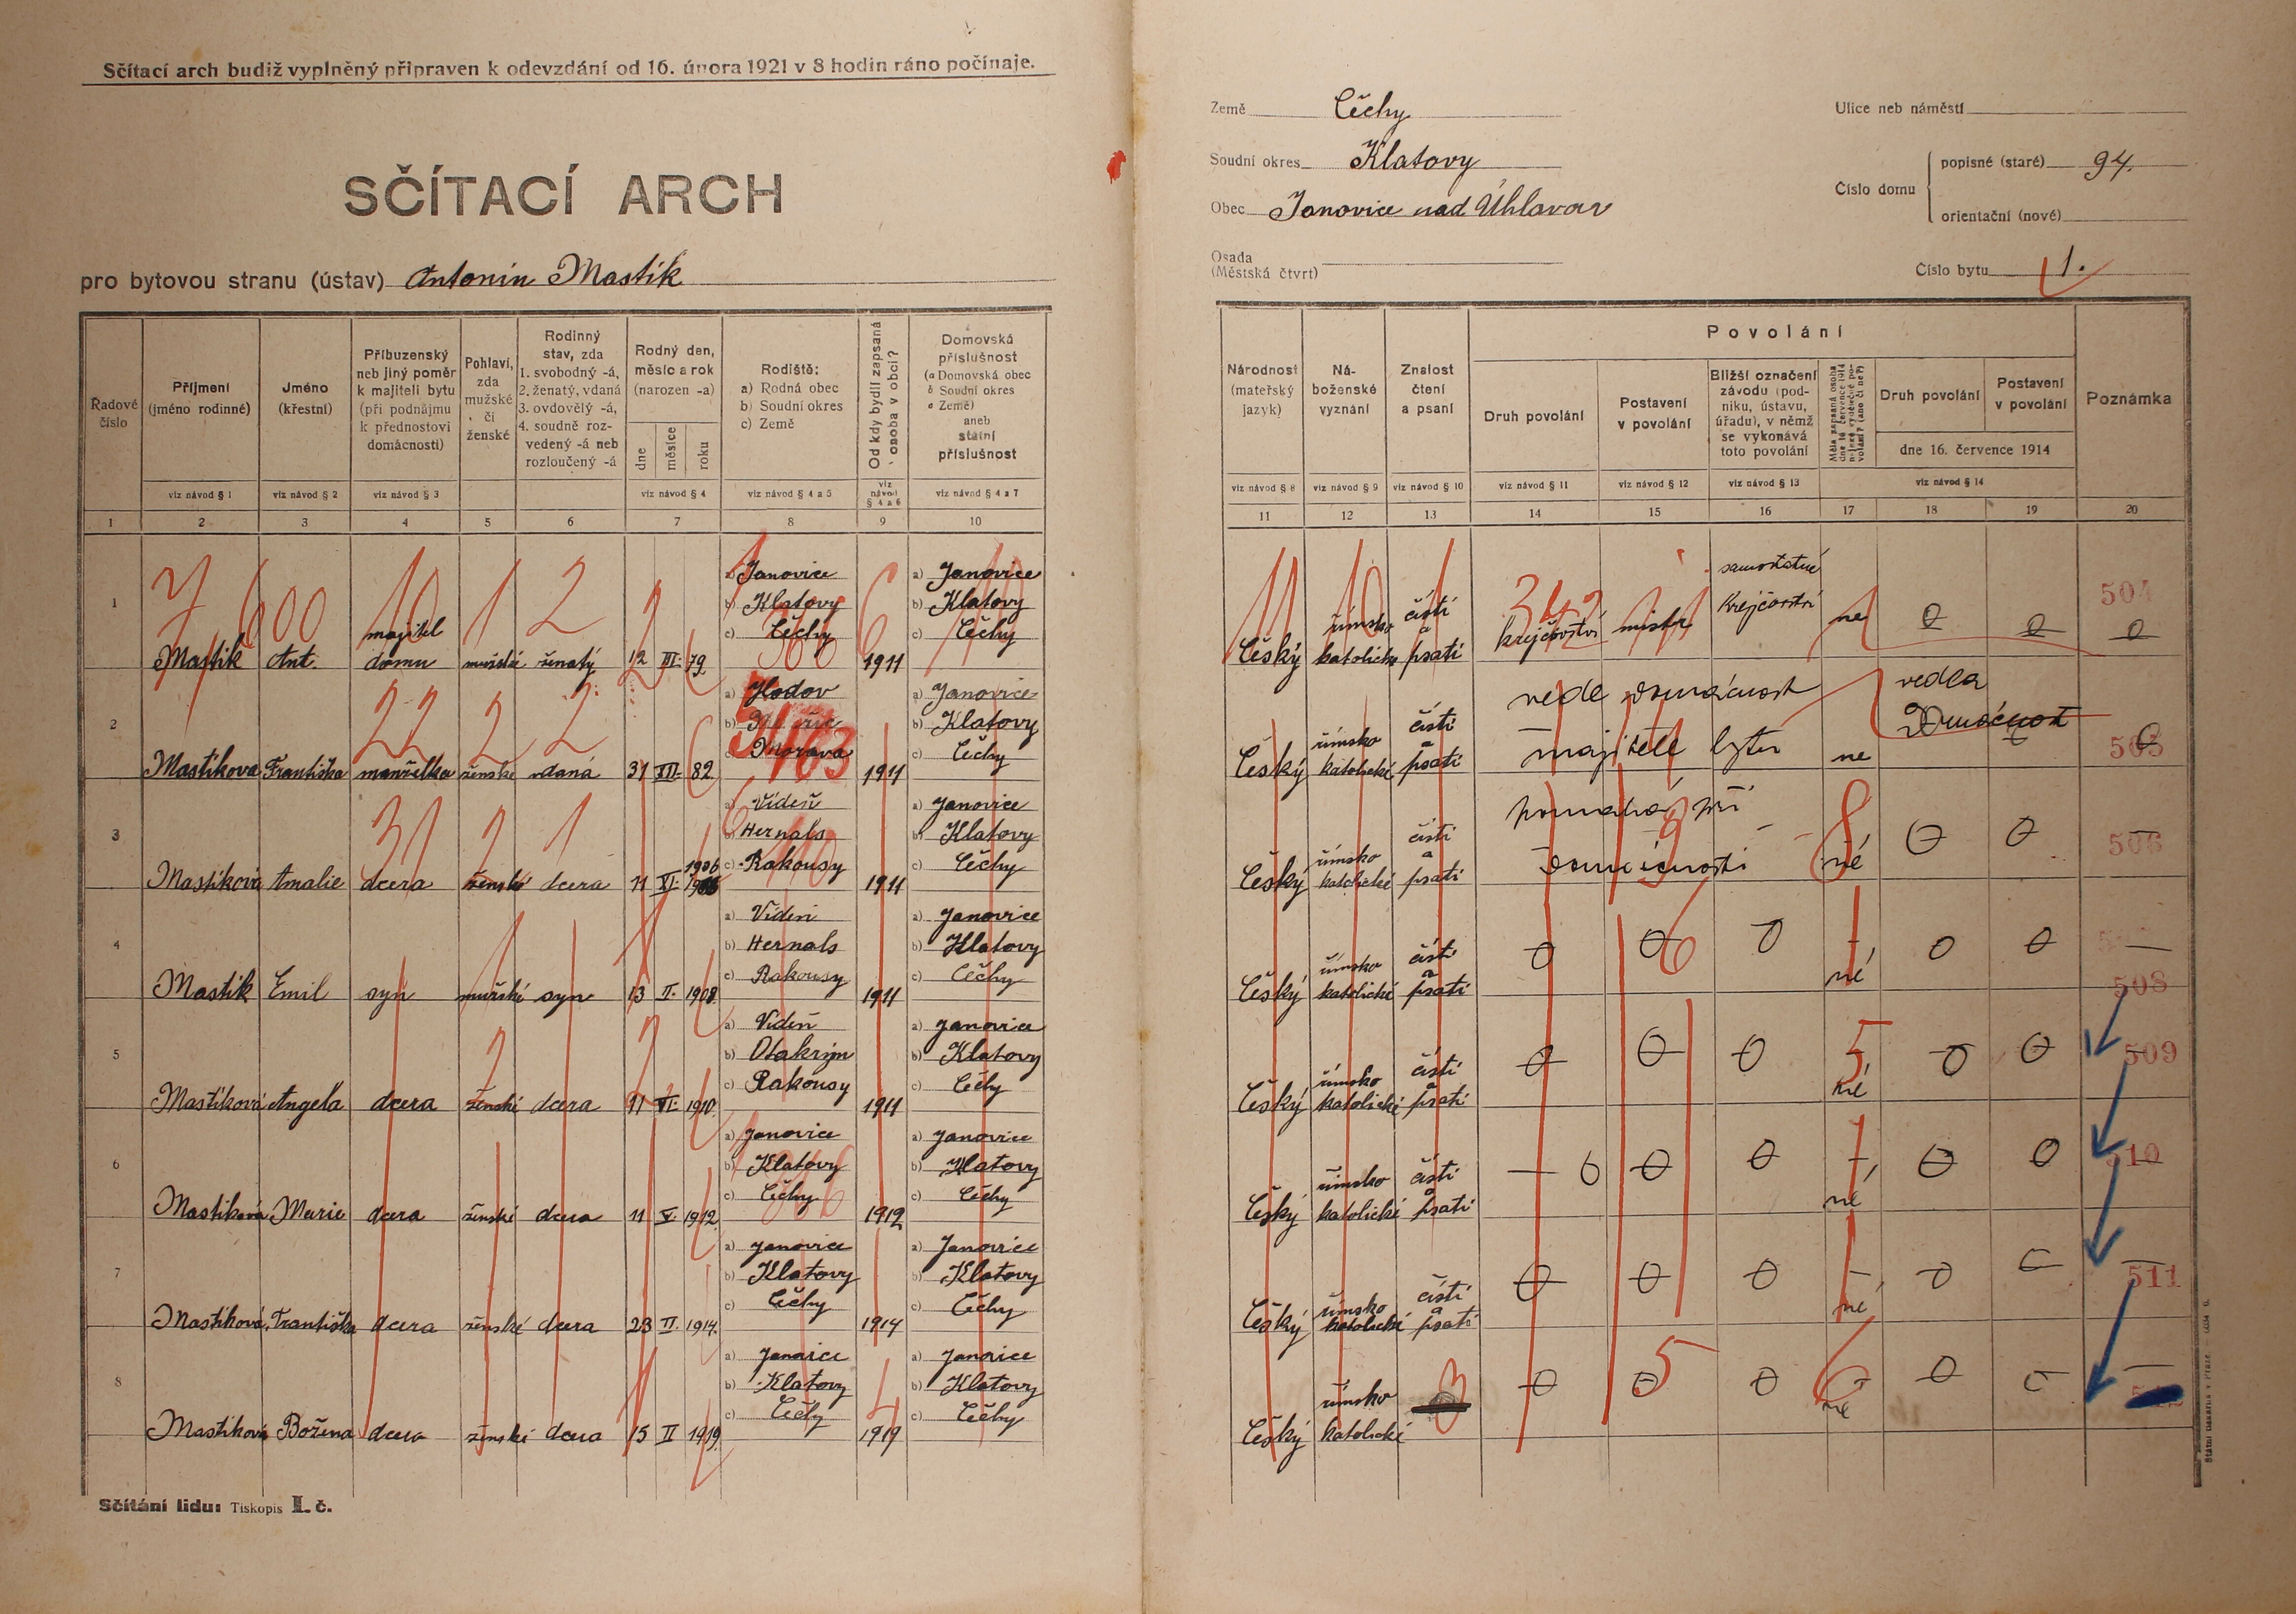 Sčítací arch budiž vyplněný připraven k odevzdání od 16. února 1921 v 8 hodin ráno počínaje.
SČÍTACÍ ARCH
pro bytovou stranu (ústav) Antonín Mastík
Země Čechy
Soudní okres Klatovy
Obec Janovice nad Úhlavou
Osada
(Městská čtvrť)
Ulice neb náměstí
Číslo domu
popisné (staré) 94.
orientační (nové)
Číslo bytu 1.
Řadové číslo
Příjmení (jméno rodinné)
Jméno (křestní)
Příbuzenský neb jiný poměr k majiteli bytu (při podnájmu k přednostovi domácnosti)
Pohlaví, zda mužské či ženské
Rodinný stav, zda 1. svobodný -á, 2. ženatý, vdaná 3. ovdovělý -á, 4. soudně rozvedený -á neb rozloučený -á
Rodný den, měsíc a rok (narozen -a)
dne měsíce roku
Rodiště: a) Rodná obec b) Soudní okres c) Země
Od kdy bydlí zapsaná osoba v obci?
Domovská příslušnost (a Domovská obec b Soudní okres c Země) aneb státní příslušnost
viz návod § 1 viz návod § 2 viz návod § 3 viz návod § 4 viz návod § 4 a 5 viz návod § 4 a 6 viz návod § 4 a 7
1 2 3 4 5 6 7 8 9 10
Národnost (mateřský jazyk)
Náboženské vyznání
Znalost čtení a psaní
Povolání
Druh povolání
Postavení v povolání
Bližší označení závodu (podniku, ústavu, úřadu), v němž se vykonává toto povolání
Druh povolání
Postavení v povolání
dne 16. července 1914
Poznámka
viz návod § 8 viz návod § 9 viz návod § 10 viz návod § 11 viz návod § 12 viz návod § 13 viz návod § 14
11 12 13 14 15 16 17 18 19 20
1 Mastík Ant. majitel domu mužské ženatý 12 III. 79 a) Janovice b) Klatovy c) Čechy 1911 a) Janovice b) Klatovy c) Čechy
Český římsko katolické čísti a psáti krejčovství mistr samostatné krejčovství ne 0 0 0 504
2 Mastíkova Františka manželka ženské vdaná 31 XII. 82 a) Hodov c) Morava 1911 a) Janovice b) Klatovy c) Čechy
Český římsko katolické čísti a psáti vede domácnost majitele bytu ne vedla Domácnost 505
3 Mastíková Amalie dcera ženské dcera 11 XI. 1906 a) Vídeň b) Hernals c) Rakousy 1911 a) Janovice b) Klatovy c) Čechy
Český římsko katolické čísti a psáti pomáhá při domácnosti né 0 0 506
4 Mastík Emil syn mužské syn 13 II. 1908 a) Vídeň b) Hernals c) Rakousy 1911 a) Janovice b) Klatovy c) Čechy
Český římsko katolické čísti a psáti 0 0 0 né 0 0 508
5 Mastíková Angela dcera ženské dcera 11 VI. 1910 a) Vídeň b) Otakrýn c) Rakousy 1911 a) Janovice b) Klatovy c) Čechy
Český římsko katolické čísti a psáti 0 0 0 né 0 0 509
6 Mastíková Marie dcera ženské dcera 11 V. 1912 a) Janovice b) Klatovy c) Čechy 1912 a) Janovice b) Klatovy c) Čechy
Český římsko katolické čísti a psáti 0 0 0 né 0 0 510
7 Mastíková Františka dcera ženské dcera 23 II. 1914. a) Janovice b) Klatovy c) Čechy 1914 a) Janovice b) Klatovy c) Čechy
Český římsko katolické čísti a psáti 0 0 0 né 0 511
8 Mastíková Božena dcera ženské dcera 15 II 1919 a) Janovice b) Klatovy c) Čechy 1919 a) Janovice b) Klatovy c) Čechy
Český římsko katolické 0 0 0 né 0
Sčítání lidu: Tiskopis I. č.